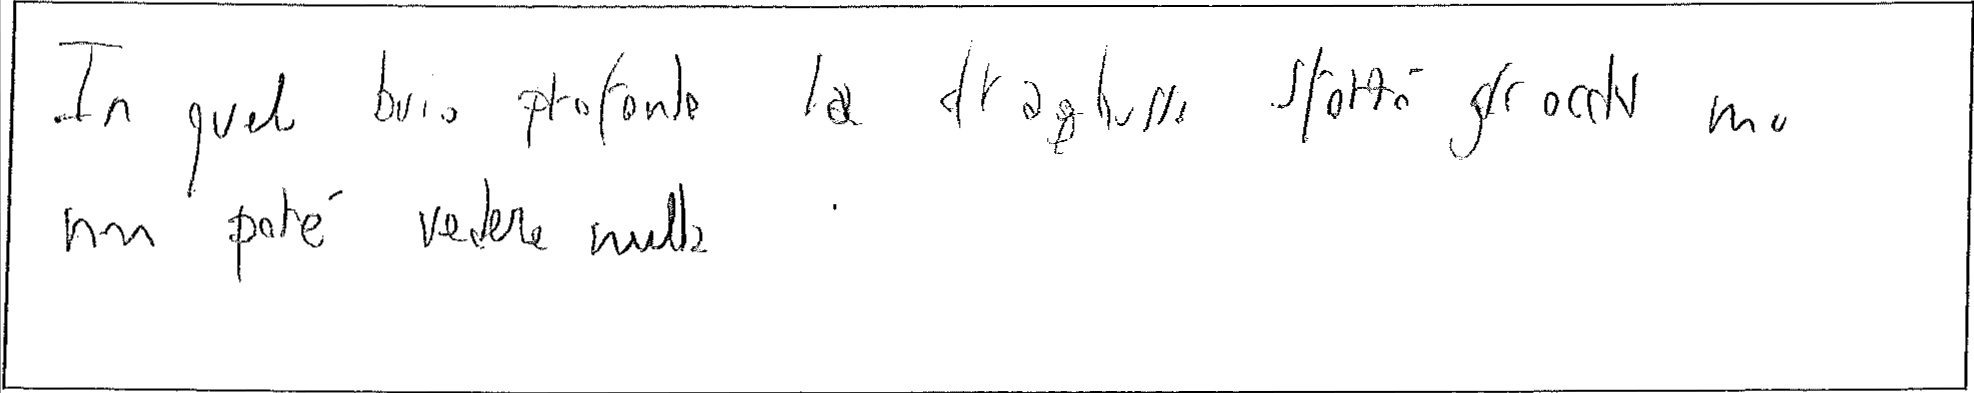 In quel buio profondo la draghessa sforzò gli occhi ma
non poté vedere nulla.